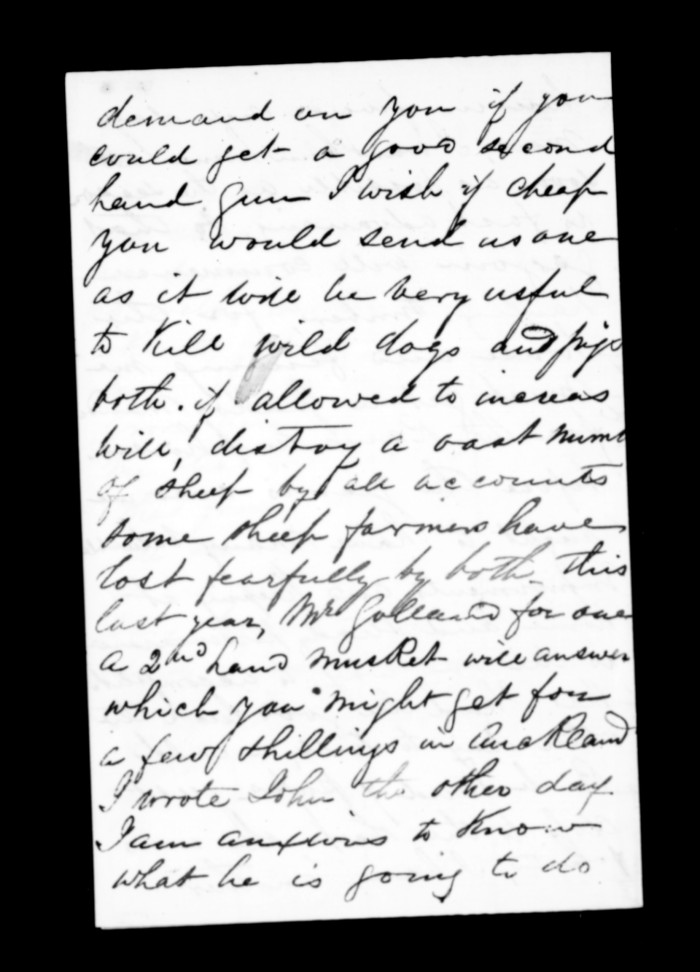 demand on you if you
could get a good second
hand gun I wish if cheap
you would send us one
as it wile be very usful
to Kill wild dogs and pigs
both. if allowed to increas
will, distroy a vast numb
of sheep by all accounts
some sheep farmers have
lost fearfully by both this
last year, Mr for one
a 2nd hand musket will answer
which you might get for
a few shillings in Auckland
I wrote John the other day
I am anxious to Know
what he is going to do